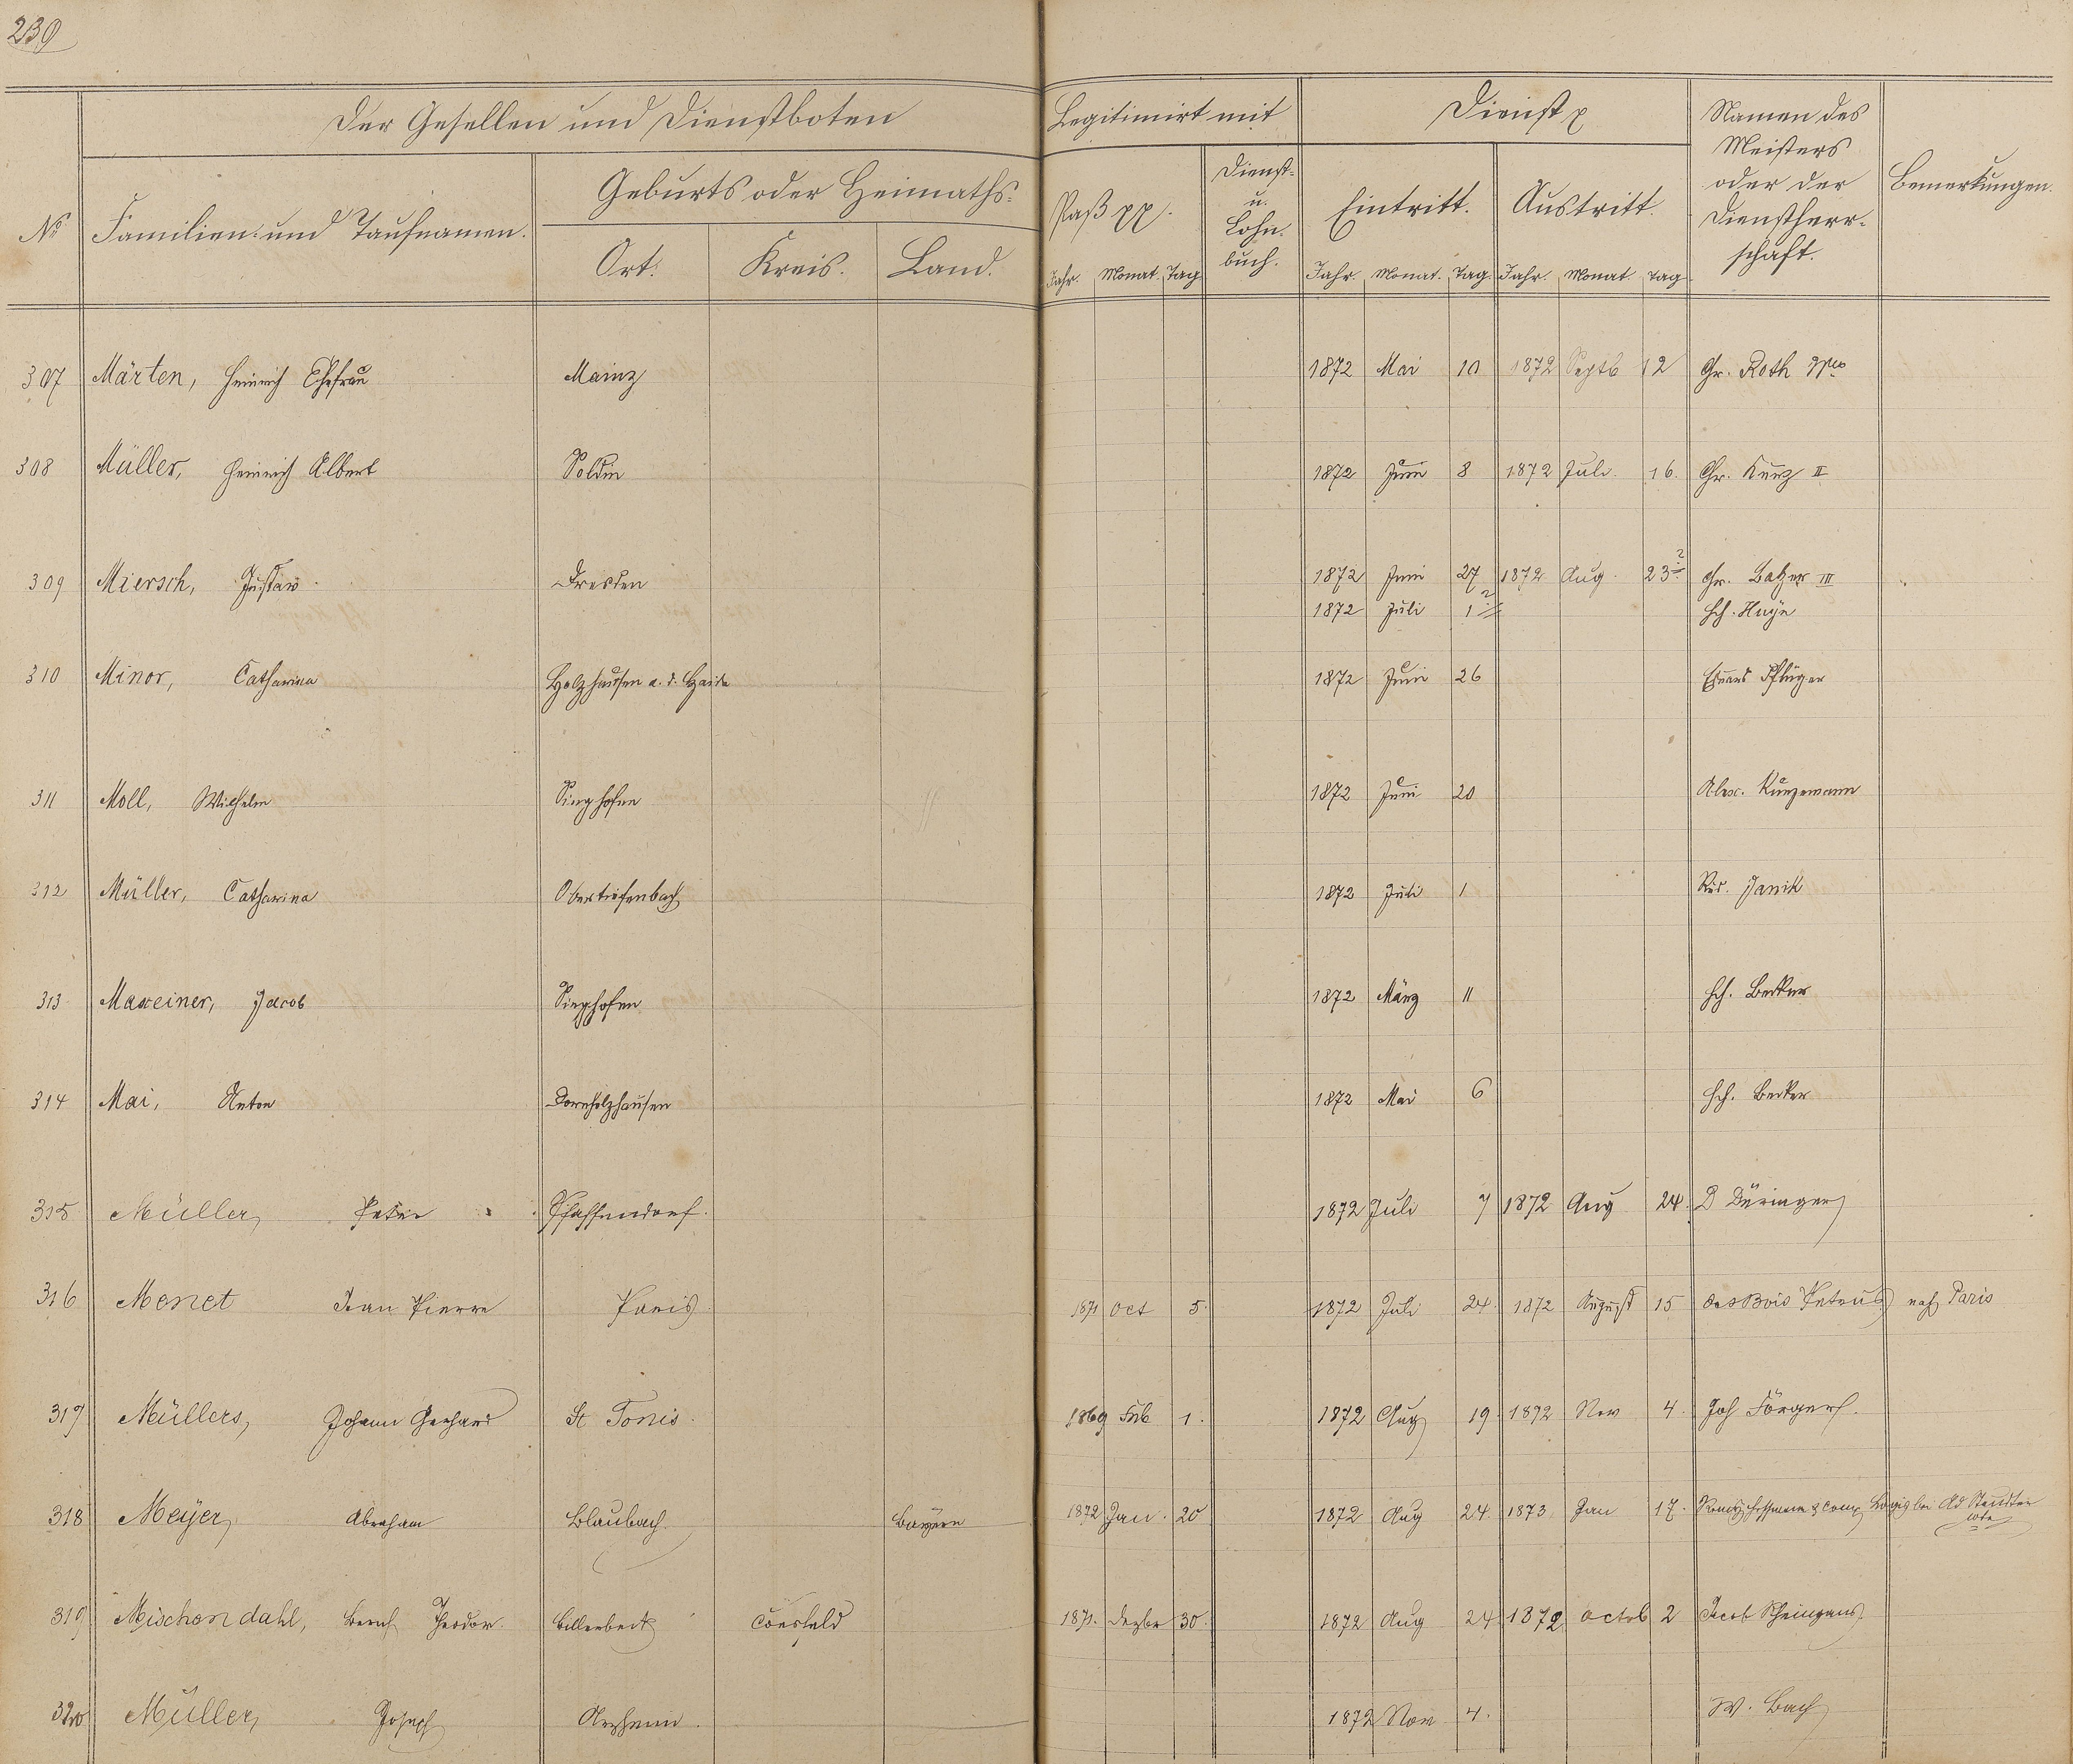 239
Der Gesellen und Dienstboten
Legitimirt mit
Dienst
Namen des
Meisters
oder der
Dienstherr-
schaft.
Bemerkungen.
No
Familien- und Taufnamen.
Geburts oder Heimaths-
Ort.
Kreis.
Land.
Paß
Dienst-
u.
Lohn-
buch.
Eintritt.
Austritt.
Jahr. Monat. Tag
Jahr. Monat. Tag. Jahr. Monat. Tag
307 Märten, Heinrich Ehefrau Mainz 1872 Mai 10 1872 Septb 12 Chr. Roth
308 Müller, Heinrich Albert Soldin 1872 Juni 8 1872 Juli 16. Chr. Kurz II
309 Miersch, Gustav Dresden 1872 Juni 27 1872 Aug. 23 ? Chr. Balzer III
1872 Juli 1 ? Hch. Haye
310 Minor, Catharina Holzhausen a. d. Haide 1872 Juni 26 Eduard Pflüger
311 Moll, Wilhelm Singhofen 1872 Juni 20 Alex. Kunzemann
312 Müller, Catharina Obertiefenbach 1872 Juli 1 Janik
313 Maxeiner, Jacob Singhofen 1872 März 11 Hch. Becker
314 Mai, Anton Dornholzhausen 1872 Mai 6 Hch. Becker
315 Müller, Peter Pfaffendorf. 1872 Juli 7 1872 Aug 24. D Düringer
316 Monet Jean Pierre Paris 1871 Oct 5. 1872 Juli 24. 1872 August 15 Des Bois Petrus nach Paris
317 Müllers, Johann Gerhard St Tonis. 1869 Feb 1. 1872 Aug 19. 1872 Nov 4. Joh Förger
318 Meyer, Abraham Blaubach. Bayern 1872 Jan. 20 1872 Aug 24. 1873. Jan 17. Hoffmann & Comp Logis bei Ad Steudter
319 Mischondahl, Bern Theodor. Billerbeck Coesfeld 1871. Dezbr 30. 1872 Aug 24 1872 Octob 2 Jacob Rheingans.
320 Müller, Joseph Arzheim. 1872 Nov 4. W. Bach